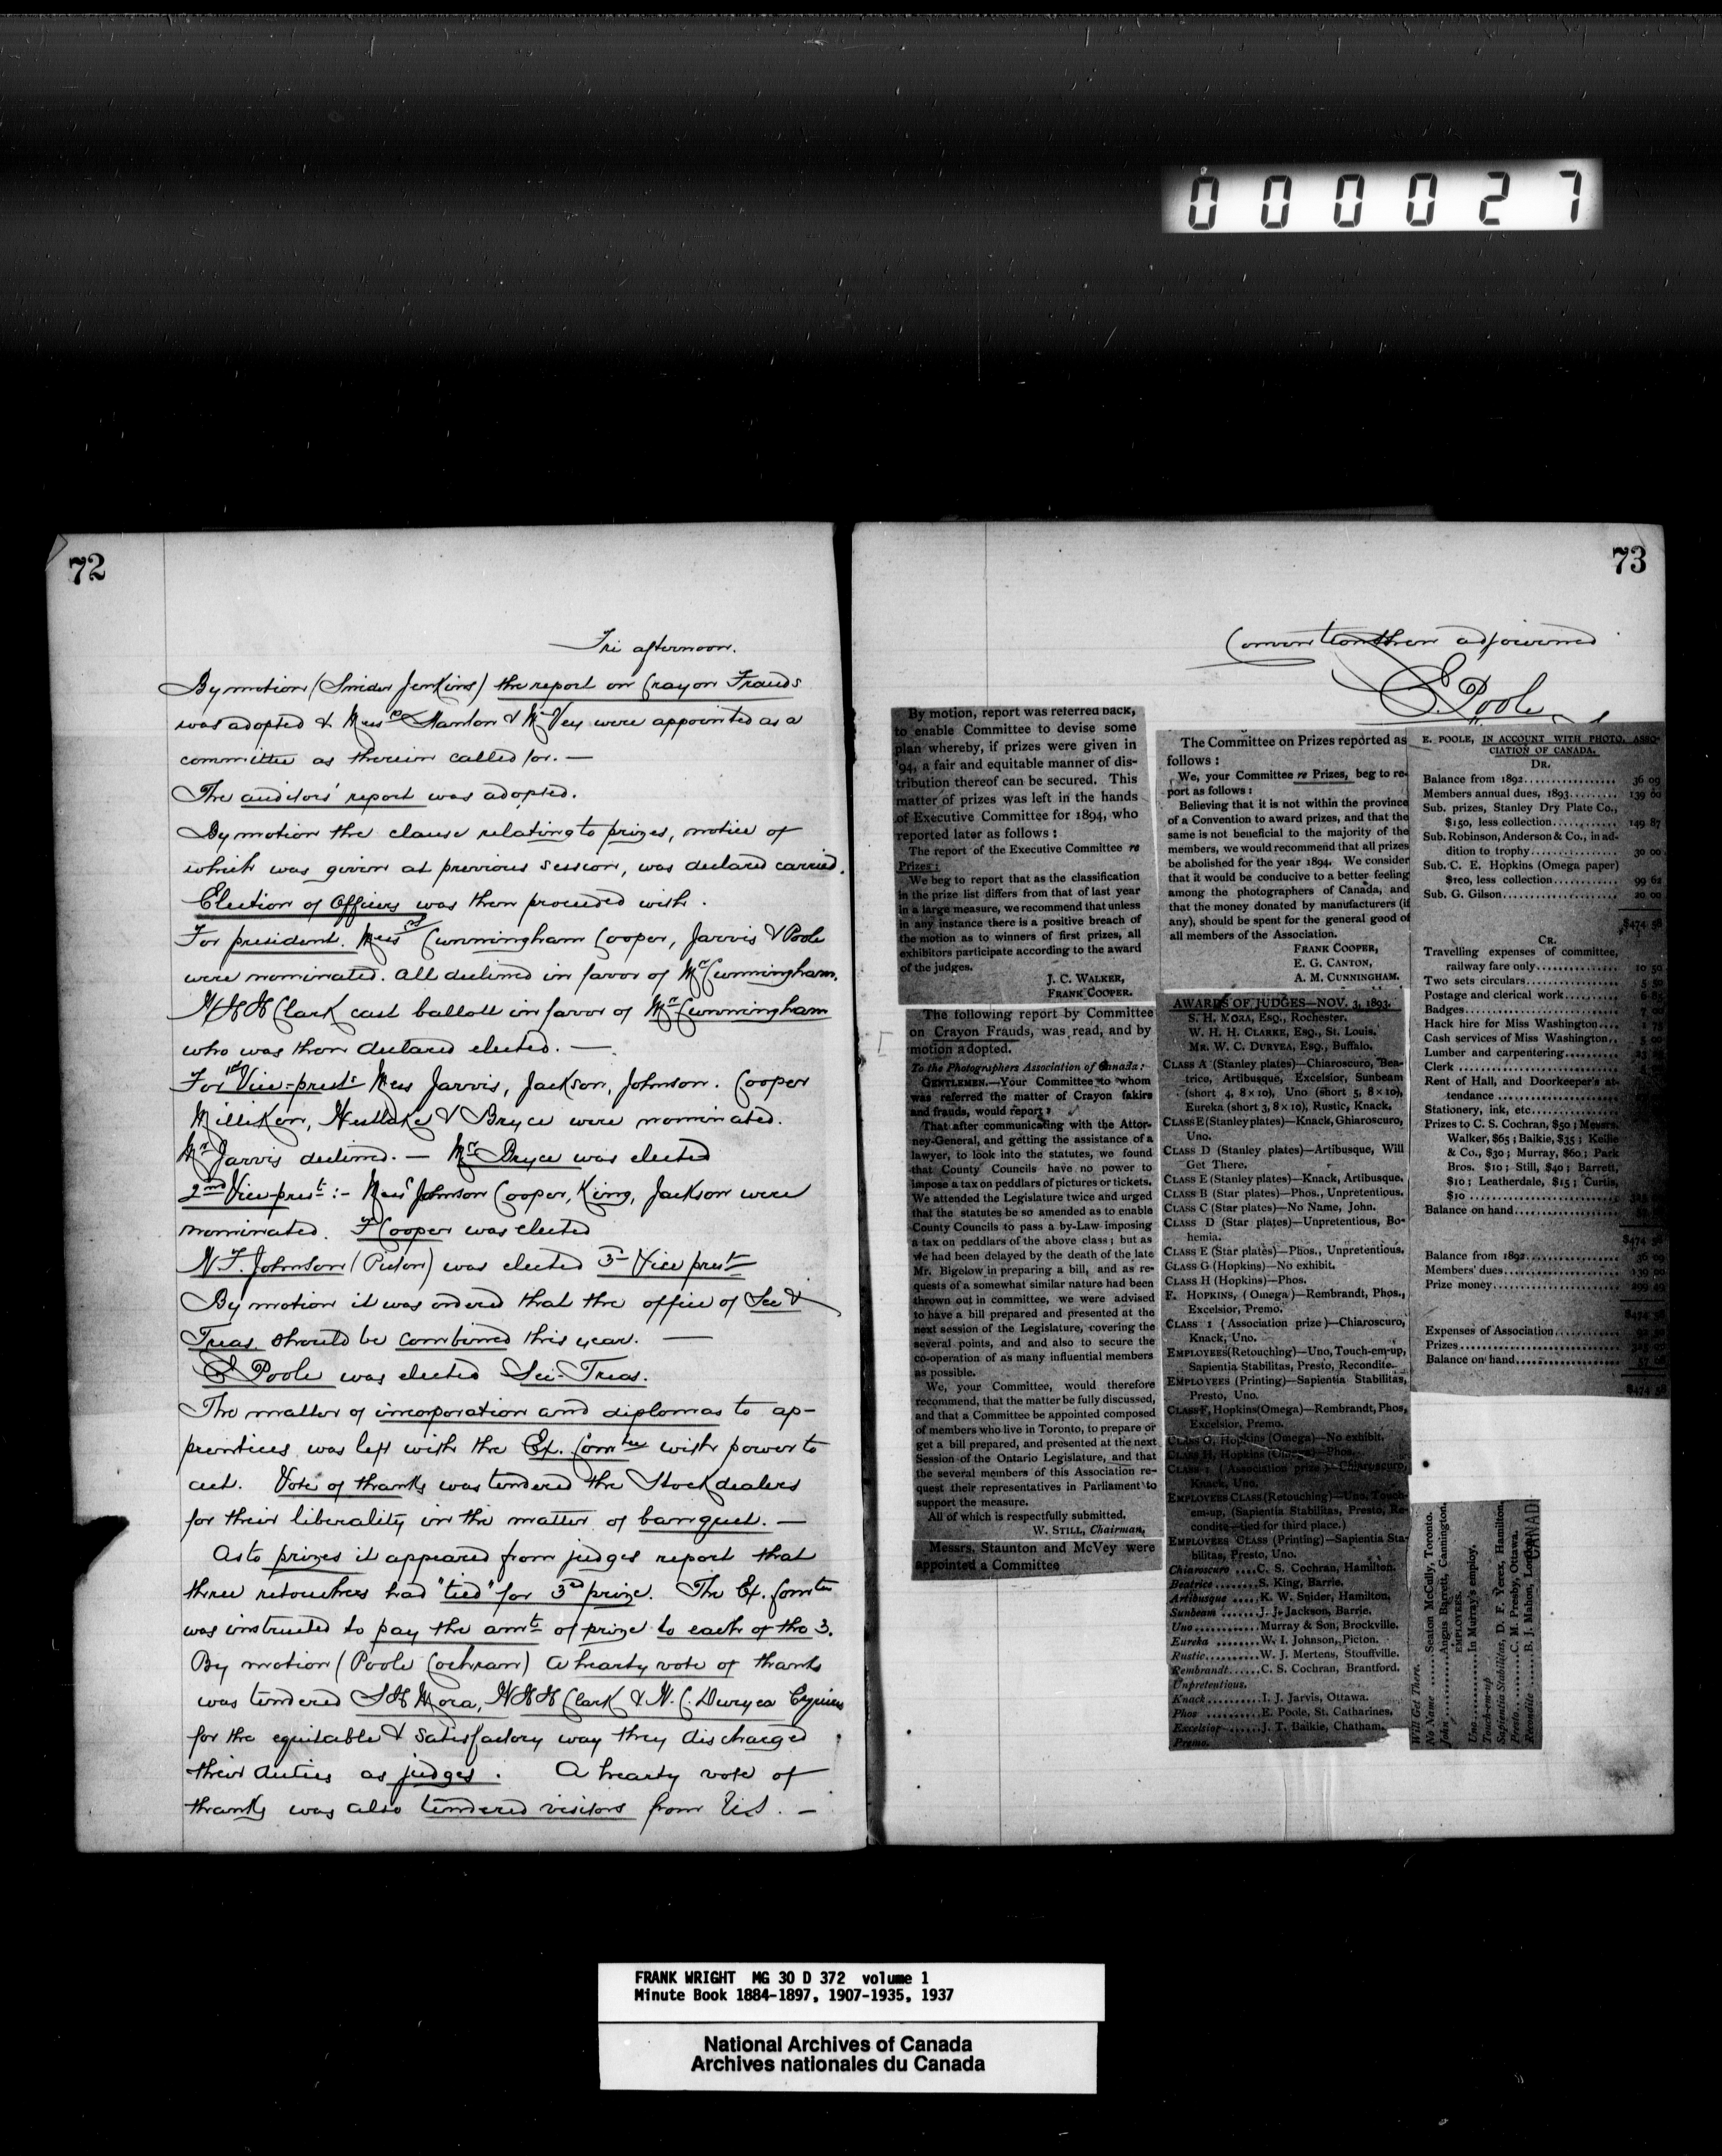 0 0 0 0 2 7
72
Fri afternoon.
By motion (Snider Jenkins) the report on Crayon Frauds
was adopted & Mess rs Stanton & McVey were appointed as a
committee as therein called for. —
The auditors' report was adopted.
By motion the clause relating to prizes, notice of
which was given at previous session, was declared carried.
Election of Officers was then proceeded with.
For president. Mess rs Cunningham Cooper, Jarvis & Poole
were nominated. All declined in favor of Mr Cunningham.
W H H Clark cast ballott in favor of Mr Cunningham
who was then declared elected. —
For 1st Vice-prest: Mess Jarvis, Jackson, Johnson. Cooper
Milliken, Westlake & Bryce were nominated.
Mr Jarvis declined. — Mr Bryce was elected
2nd Vice-prest :- Mess Johnson Cooper, King, Jackson were
nominated. F Cooper was elected
Johnson (Picton) was elected 3rd Vice prest
By motion it was ordered that the office of Sec &
Treas. should be combined this year. —
E Poole was elected Sec-Treas.
The matter of incorporation and diplomas to ap-
prentices was left with the Ex. Comtee with power to
act. Vote of thanks was tendered the Stockdealers
for their liberality in the matter of banquet. —
As to prizes it appeared from judges report that
three retouchers had "tied" for 3rd prize. The Ex. Comtee
was instructed to pay the amt of prize to each of the 3.
By motion (Poole Cochran) a hearty vote of thanks
was tendered S H Mora, W H H Clark & W. C. Duryea Esquires
for the equitable & satisfactory way they discharged
their duties as judges. A hearty vote of
thanks was also tendered visitors from U.S. —
73
Convention then adjourned
E. Poole
By motion, report was referred back,
to enable Committee to devise some
plan whereby, if prizes were given in
'94, a fair and equitable manner of dis-
tribution thereof can be secured. This
matter of prizes was left in the hands
of Executive Committee for 1894, who
reported later as follows :
The report of the Executive Committee re
Prizes :
We beg to report that as the classification
in the prize list differs from that of last year
in a large measure, we recommend that unless
in any instance there is a positive breach of
the motion as to winners of first prizes, all
exhibitors participate according to the award
of the judges.
J. C. WALKER,
FRANK COOPER.
The following report by Committee
on Crayon Frauds, was read, and by
motion adopted.
To the Photographers Association of Canada :
GENTLEMEN.—Your Committee to whom
was referred the matter of Crayon fakirs
and frauds, would report ;
That after communicating with the Attor-
ney-General, and getting the assistance of a
lawyer, to look into the statutes, we found
that County Councils have no power to
impose a tax on peddlars of pictures or tickets.
We attended the Legislature twice and urged
that the statutes be so amended as to enable
County Councils to pass a by-Law imposing
a tax on peddlars of the above class ; but as
we had been delayed by the death of the late
Mr. Bigelow in preparing a bill, and as re-
quests of a somewhat similar nature had been
thrown out in committee, we were advised
to have a bill prepared and presented at the
next session of the Legislature, covering the
several points, and and also to secure the
co-operation of as many influential members
as possible.
We, your Committee, would therefore
recommend, that the matter be fully discussed,
and that a Committee be appointed composed
of members who live in Toronto, to prepare or
get a bill prepared, and presented at the next
Session of the Ontario Legislature, and that
the several members of this Association re-
quest their representatives in Parliament to
support the measure.
All of which is respectfully submitted.
W. STILL, Chairman,
Messrs. Staunton and McVey were
appointed a Committee
The Committee on Prizes reported as
follows :
We, your Committee re Prizes, beg to re-
port as follows :
Believing that it is not within the province
of a Convention to award prizes, and that the
same is not beneficial to the majority of the
members, we would recommend that all prizes
be abolished for the year 1894. We consider
that it would be conducive to a better feeling
among the photographers of Canada, and
that the money donated by manufacturers (if
any), should be spent for the general good of
all members of the Association.
FRANK COOPER,
E. G. CANTON,
A. M. CUNNINGHAM.
AWARDS OF JUDGES—NOV. 3, 1893.
S. H. MORA, ESQ., Rochester.
W. H. H. CLARKE, ESQ., St. Louis.
MR. W. C. DURYEA, ESQ., Buffalo.
CLASS A (Stanley plates)—Chiaroscuro, Bea-
trice, Artibusque, Excelsior, Sunbeam
(short 4, 8×10), Uno (short 5, 8×10),
Eureka (short 3, 8×10), Rustic, Knack.
CLASS E (Stanley plates)—Knack, Ghiaroscuro,
Uno.
CLASS D (Stanley plates)—Artibusque, Will
Get There.
CLASS E (Stanley plates)—Knack, Artibusque.
CLASS B (Star plates)—Phos., Unpretentious.
CLASS C (Star plates)—No Name, John.
CLASS D (Star plates)—Unpretentious, Bo-
hemia.
CLASS E (Star plates)—Phos., Unpretentious.
CLASS G (Hopkins)—No exhibit.
CLASS H (Hopkins)—Phos.
F. HOPKINS, (Omega)—Rembrandt, Phos.,
Excelsior, Premo.
CLASS I (Association prize)—Chiaroscuro,
Knack, Uno.
EMPLOYEES (Retouching)—Uno, Touch-em-up,
Sapientia Stabilitas, Presto, Recondite.
EMPLOYEES (Printing)—Sapientia Stabilitas,
Presto, Uno.
CLASS F, Hopkins (Omega)—Rembrandt, Phos,
Excelsior, Premo.
CLASS G, Hopkins (Omega)—No exhibit.
CLASS H, Hopkins (Omega)—Phos.
CLASS I (Association prize)—Chiaroscuro,
Knack, Uno.
EMPLOYEES CLASS (Retouching)—Uno, Touch-
em-up, (Sapientia Stabilitas, Presto, Re-
condite—tied for third place.)
EMPLOYEES CLASS (Printing)—Sapientia Sta-
bilitas, Presto, Uno.
Chiaroscuro ....C. S. Cochran, Hamilton.
Beatrice ........S. King, Barrie.
Artibusque .....K. W. Snider, Hamilton.
Sunbeam .......J. J. Jackson, Barrie.
Uno............Murray & Son, Brockville.
Eureka ........W. I. Johnson, Picton.
Rustic..........W. J. Mertens, Stouffville.
Rembrandt......C. S. Cochran, Brantford.
Unpretentious.
Knack ..........I. J. Jarvis, Ottawa.
Phos ...........E. Poole, St. Catharines.
Excelsior ......J. T. Baikie, Chatham.
Premo.
E. POOLE, IN ACCOUNT WITH PHOTO. ASSO-
CIATION OF CANADA.
DR.
Balance from 1892................ 36 09
Members annual dues, 1893......... 139 00
Sub. prizes, Stanley Dry Plate Co.,
$150, less collection............ 149 87
Sub. Robinson, Anderson & Co., in ad-
dition to trophy................ 30 00
Sub. C. E. Hopkins (Omega paper)
$100, less collection............ 99 62
Sub. G. Gilson.................... 20 00
$474 58
CR.
Travelling expenses of committee,
railway fare only............... 10 50
Two sets circulars................ 5 50
Postage and clerical work.......... 6 85
Badges............................ 7 00
Hack hire for Miss Washington.... 1 75
Cash services of Miss Washington.. 5 00
Lumber and carpentering..........
Clerk ............................
Rent of Hall, and Doorkeeper's at-
tendance ......................
Stationery, ink, etc................
Prizes to C. S. Cochran, $50 ; Messrs.
Walker, $65 ; Baikie, $35 ; Keilie
& Co., $30 ; Murray, $60 ; Park
Bros. $10 ; Still, $40 ; Barrett,
$10 ; Leatherdale, $15 ; Curtis,
$10 ..........................
Balance on hand..................
$474 58
Balance from 1892................ 36 09
Members' dues.................... 139 00
Prize money...................... 299 49
$474 58
Expenses of Association...........
Prizes............................
Balance on hand..................
$474 58
Will Get There.
No Name ......Seaton McCully, Toronto.
John ..........Angus Barrett, Cannington.
EMPLOYEES.
Uno...........In Murray's employ.
Touch-em-up
Sapientia Stabilitas, D. F. Yerex, Hamilton.
Presto.........C. M. Presby, Ottawa.
Recondite .....B. J. Mahon, London.
CANAD
FRANK WRIGHT MG 30 D 372 volume 1
Minute Book 1884-1897, 1907-1935, 1937
National Archives of Canada
Archives nationales du Canada